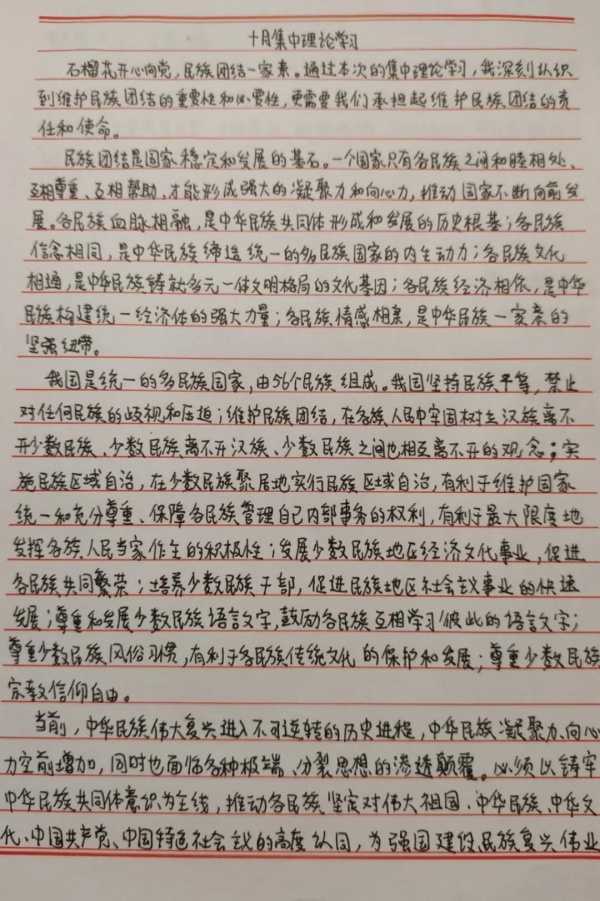 十月集中理论学习
石榴花开心向党，民族团结一家亲。通过本次的集中理论学习，我深刻认识
到维护民族团结的重要性和必要性，更需要我们承担起维护民族团结的责
任和使命。
民族团结是国家稳定和发展的基石。一个国家只有各民族之间和睦相处、
互相尊重、互相帮助，才能形成强大的凝聚力和向心力，推动国家不断向前发
展。各民族血脉相融，是中华民族共同体形成和发展的历史根基；各民族
信念相同，是中华民族缔造统一的多民族国家的内生动力；各民族文化
相通，是中华民族铸就多元一体文明格局的文化基因；各民族经济相依，是中华
民族构建统一经济体的强大力量；各民族情感相亲，是中华民族一家亲的
坚强纽带。
我国是统一的多民族国家，由56个民族组成。我国坚持民族平等，禁止
对任何民族的歧视和压迫；维护民族团结，在各族人民中牢固树立汉族离不
开少数民族、少数民族离不开汉族、少数民族之间也相互离不开的观念；实
施民族区域自治，在少数民族聚居地实行民族区域自治，有利于维护国家
统一和充分尊重、保障各民族管理自己内部事务的权利，有利于最大限度地
发挥各族人民当家作主的积极性；发展少数民族地区经济文化事业，促进
各民族共同繁荣；培养少数民族干部，促进民族地区社会主义事业的快速
发展；尊重和发展少数民族语言文字，鼓励各民族互相学习彼此的语言文字；
尊重少数民族风俗习惯，有利于各民族传统文化的保护和发展；尊重少数民族
宗教信仰自由。
当前，中华民族伟大复兴进入不可逆转的历史进程，中华民族凝聚力、向心
力空前增加，同时也面临各种极端、分裂思想的渗透颠覆。必须以铸牢
中华民族共同体意识为主线，推动各民族坚定对伟大祖国、中华民族、中华文
化、中国共产党、中国特色社会主义的高度认同，为强国建设、民族复兴伟业